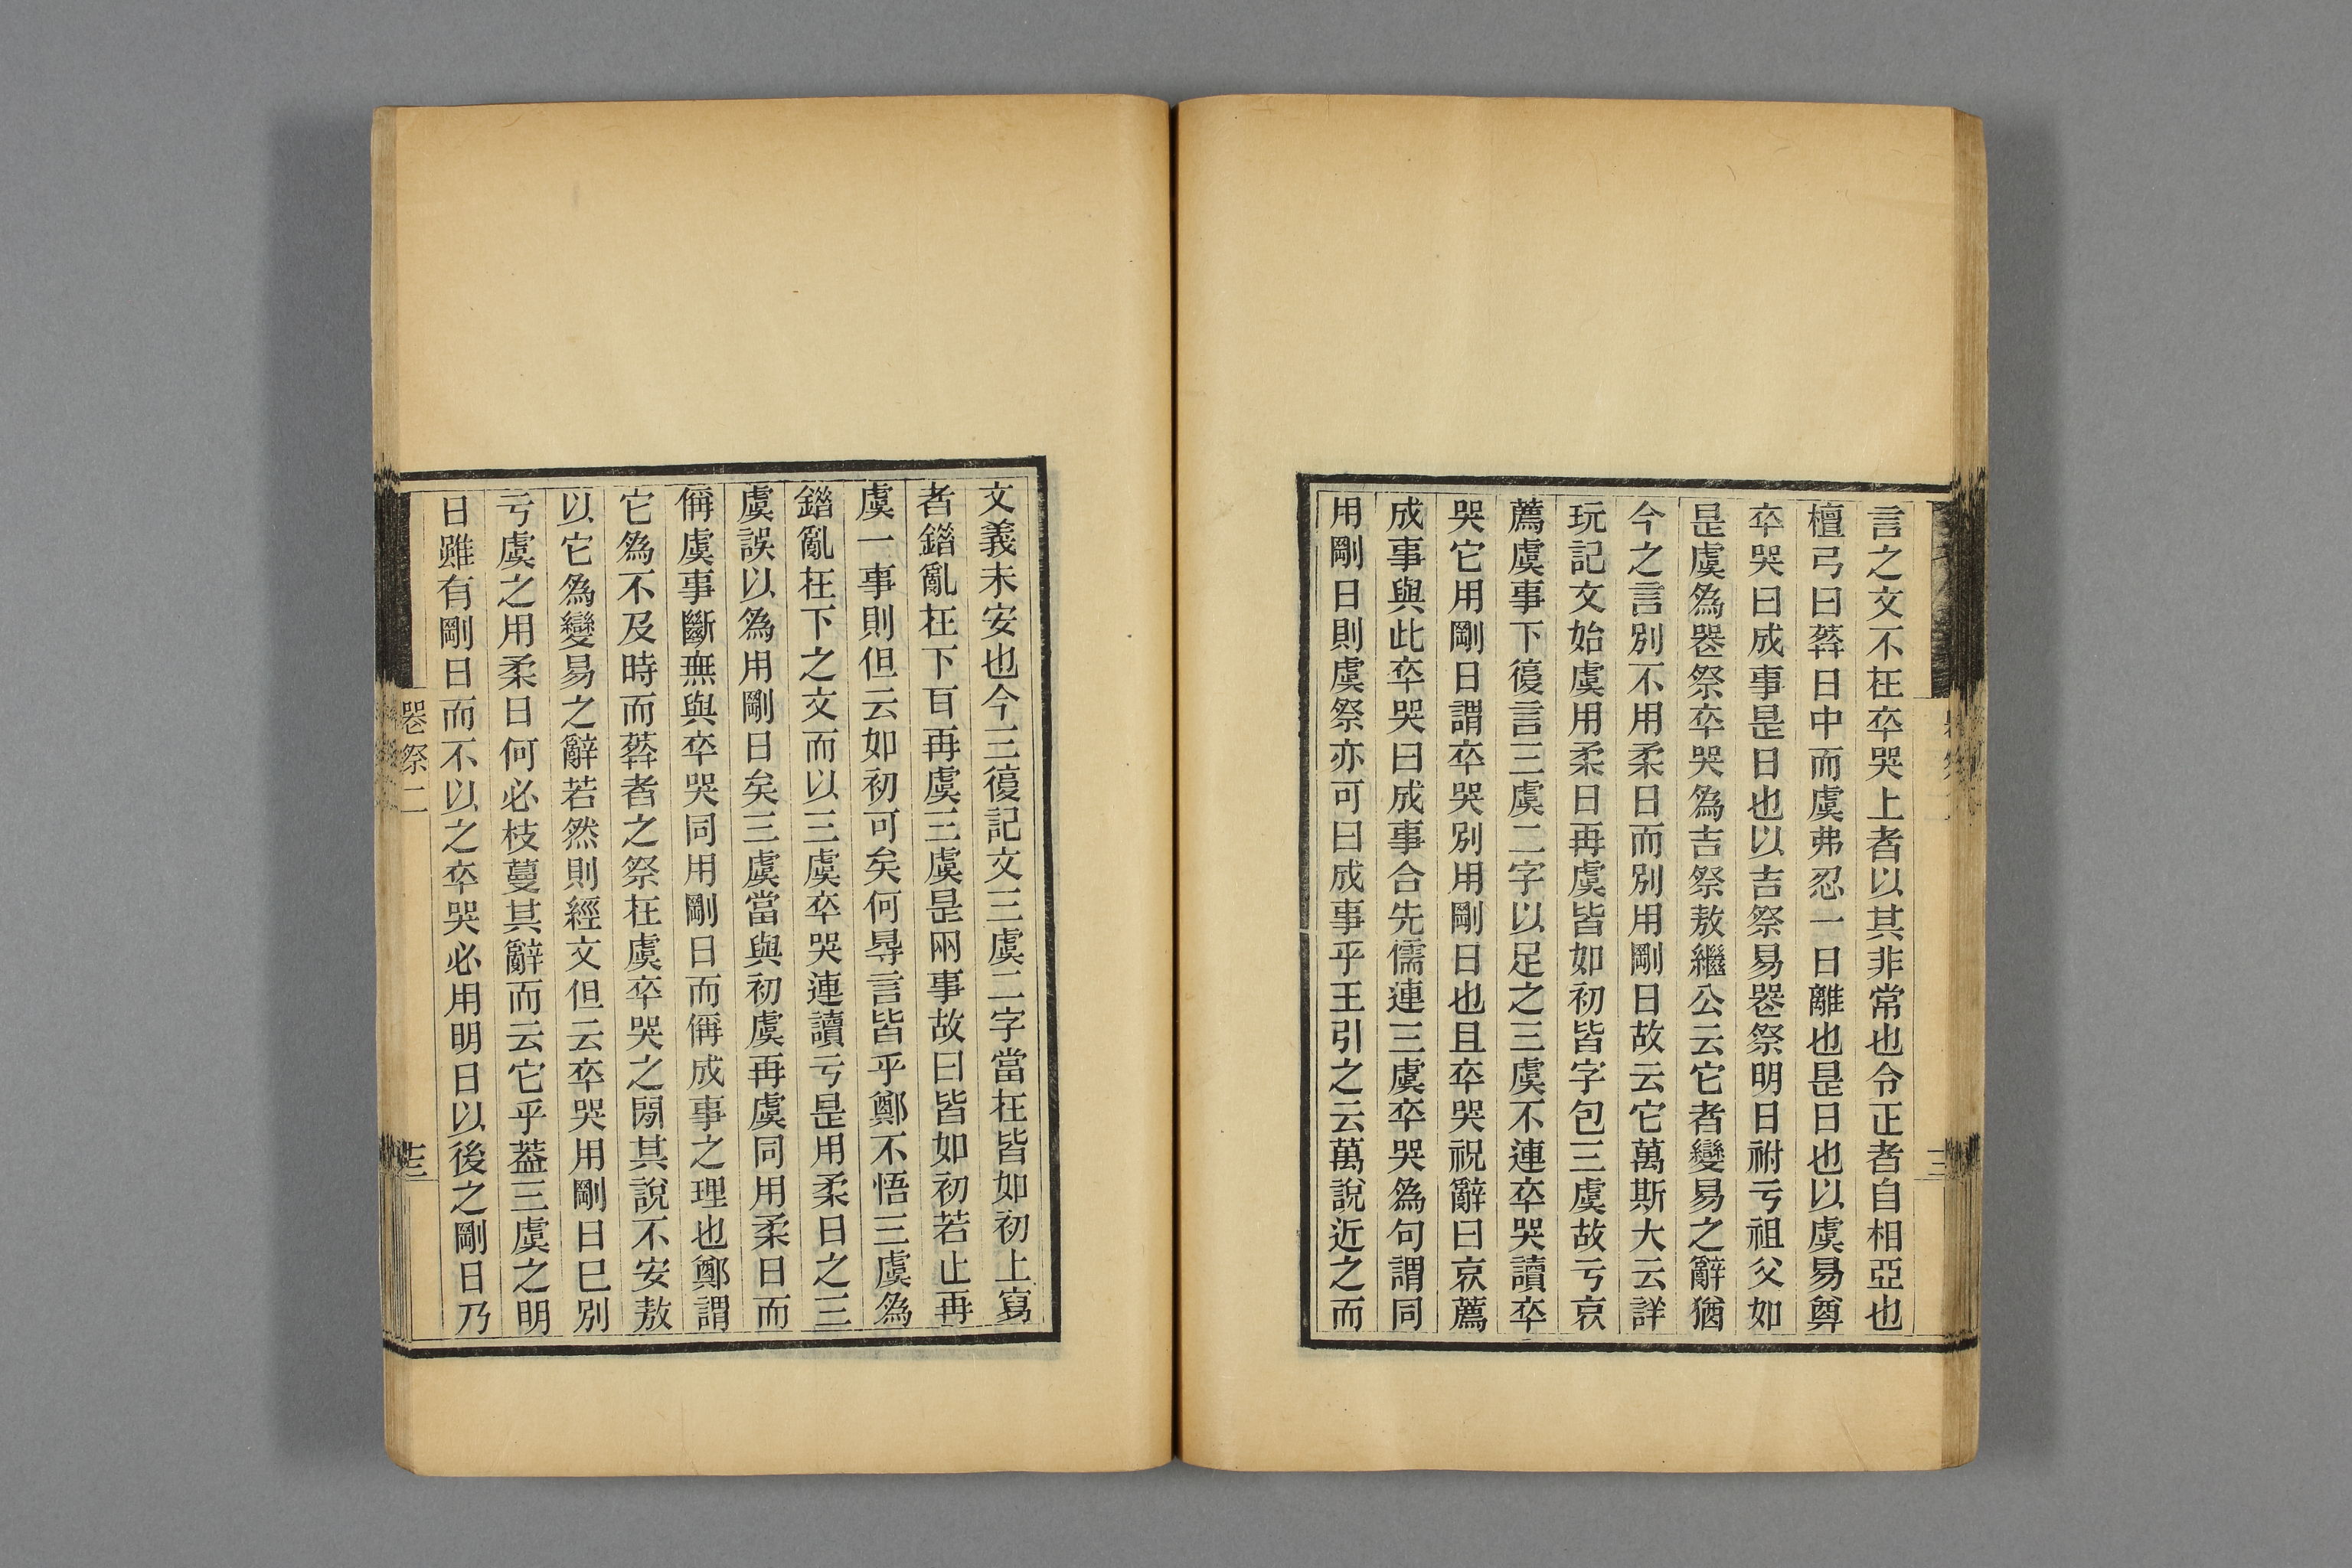 言之文不在卒哭上者以其非常也令正者自相亞也
檀弓曰葬日中而虞弗忍一日離也是日也以虞易奠
卒哭曰成事是日也以吉祭易喪祭明日祔亏祖父如
是虞爲喪祭卒哭爲吉祭敖繼公云它者變易之辭猶
今之言別不用柔日而別用剛日故云它萬斯大云詳
玩記文始虞用柔日再虞皆如初皆字包三虞故亏哀
薦虞事下復言三虞二字以足之三虞不連卒哭讀卒
哭它用剛日謂卒哭別用剛日也且卒哭祝辭曰哀薦
成事與此卒哭曰成事合先儒連三虞卒哭爲句謂同
用剛日則虞祭亦可曰成事乎王引之云萬說近之而
文義未安也今三復記文三虞二字當在皆如初上寫
者錯亂在下耳再虞三虞是兩事故曰皆如初若止再
虞一事則但云如初可矣何㝵言皆乎鄭不悟三虞爲
錯亂在下之文而以三虞卒哭連讀亏是用柔日之三
虞誤以爲用剛日矣三虞當與初虞再虞同用柔日而
偁虞事斷無與卒哭同用剛日而偁成事之理也鄭謂
它爲不及時而葬者之祭在虞卒哭之閒其說不安敖
以它爲變易之辭若然則經文但云卒哭用剛日已別
亏虞之用柔日何必枝蔓其辭而云它乎葢三虞之明
日雖有剛日而不以之卒哭必用明日以後之剛日乃
喪祭二